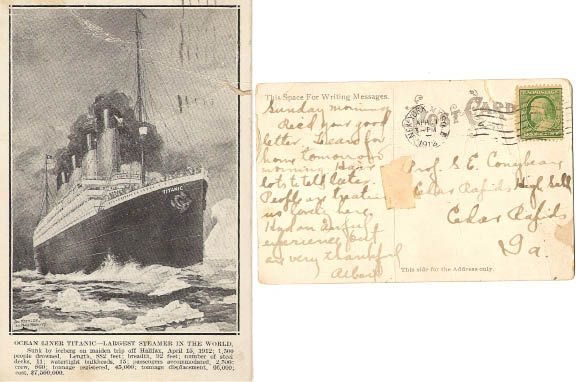 TITANIC
OCEAN LINER TITANIC—LARGEST STEAMER IN THE WORLD.
Sunk by iceberg on maiden trip off Halifax, April 15, 1912; 1,500
people drowned. Length, 882 feet; breadth, 92 feet; number of steel
decks, 11; watertight bulkheads, 15; passengers accommodated, 2,500;
crew, 860; tonnage registered, 45,000; tonnage displacement, 66,000;
cost, $7,500,000.
This Space For Writing Messages.
POST CARD
NEW YORK, N.Y.
APR
1912
Sunday morning
Rec'd your good
letter. Leave for
home tomorrow
morning. Have
lots to tell later.
People are treating
us good here.
Had an awful
experience but
am very thankful
Albert
Prof. S. E.
Cedar Rapids High
Cedar Rapids
Ia.
This side for the Address only.